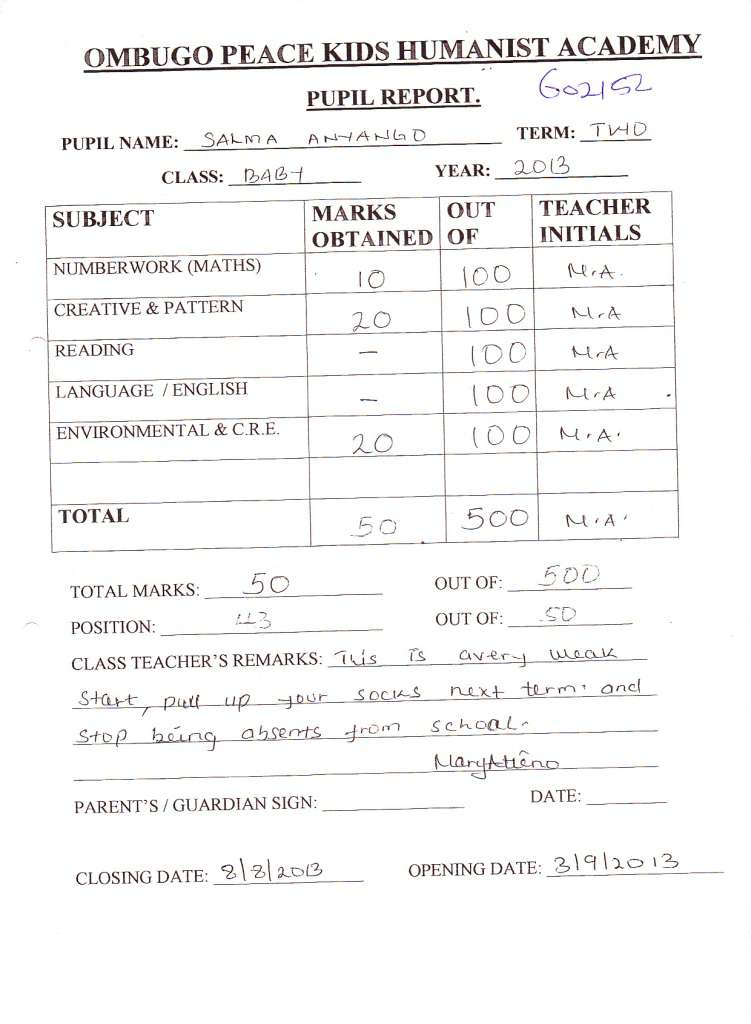 OMBUGO PEACE KIDS HUMANIST ACADEMY
G02152
PUPIL REPORT.
PUPIL NAME: SALMA ANYANGO TERM: TWO
CLASS: BABY YEAR: 2013
SUBJECT MARKS OBTAINED OUT OF TEACHER INITIALS
NUMBERWORK (MATHS) 10 100 M.A.
CREATIVE & PATTERN 20 100 M.A
READING — 100 M.A
LANGUAGE / ENGLISH — 100 M.A
ENVIRONMENTAL & C.R.E. 20 100 M.A.
TOTAL 50 500 M.A.
TOTAL MARKS: 50 OUT OF: 500
POSITION: 43 OUT OF: 50
CLASS TEACHER'S REMARKS: This is avery weak
Start, pull up your socks next term. and
Stop being absents from school.
Mary Atieno
PARENT'S / GUARDIAN SIGN: DATE:
CLOSING DATE: 8/8/2013 OPENING DATE: 3/9/2013